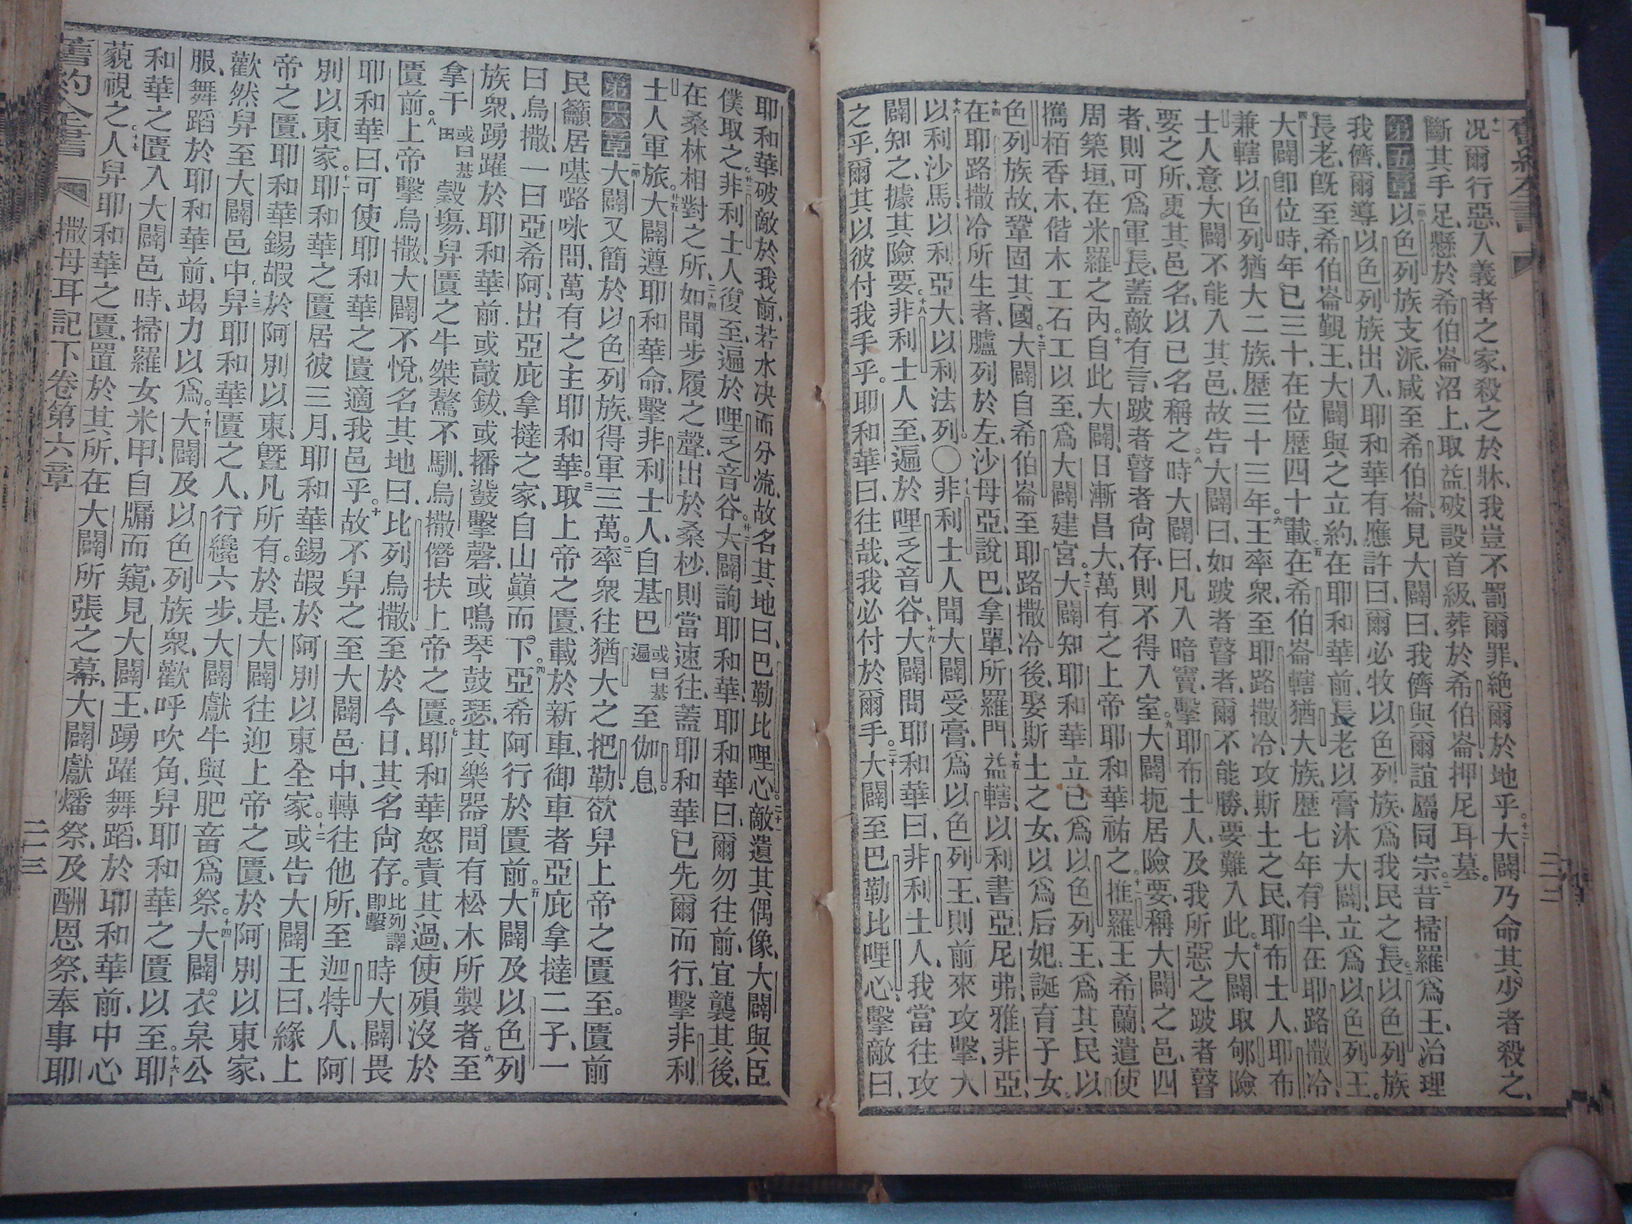 况爾行惡人義者之家、殺之於牀、我豈不罰爾罪、絶爾於地乎。十二大闢乃命其少者殺之、
斷其手足、懸於希伯崙沼上、取益破設首級、葬於希伯崙押尼耳墓。
第五章 以色列族支派、咸至希伯崙、見大闢曰、我儕與爾誼屬同宗、二昔掃羅爲王、治理
我儕、爾導以色列族出入、耶和華有應許曰、爾必牧以色列族、爲我民之長。三以色列族
長老、旣至希伯崙覲王、大闢與之立約、在耶和華前、長老以膏沐大闢、立爲以色列王。
四大闢卽位時、年已三十、在位歷四十載、五在希伯崙轄猶大族、歷七年有半、在耶路撒冷、
兼轄以色列猶大二族、歷三十三年。六王率衆、至耶路撒冷、攻斯土之民、耶布士人、耶布
士人意大闢不能入其邑、故告大闢曰、如跛者瞽者、爾不能勝、要難入此。七大闢取郇險
要之所、更其邑名、以己名稱之。八時大闢曰、凡入暗竇、擊耶布士人、及我所惡之跛者瞽
者、則可爲軍長、蓋敵有言、跛者瞽者尙存、則不得入室。九大闢扼居險要、稱大闢之邑、四
周築垣、在米羅之內、十自此大闢日漸昌大、萬有之上帝耶和華祐之。十一推羅王希蘭、遣使
攜栢香木、偕木工石工以至、爲大闢建宮。十二大闢知耶和華立己爲以色列王、爲其民以
色列族故、鞏固其國。十三大闢自希伯崙至耶路撒冷後、娶斯土之女、以爲后妃、誕育子女、
十四在耶路撒冷所生者、臚列於左、沙母亞、說巴、拿單、所羅門、十五益轄、以利書亞、尼弗、雅非亞、
十六以利沙馬、以利亞大、以利法列。〇十七非利士人聞大闢受膏、爲以色列王、則前來攻擊、大
闢知之、據其險要、十八非利士人至、遍於哩乏音谷、十九大闢問耶和華曰、非利士人、我當往攻
之乎、爾其以彼付我手乎。耶和華曰、往哉、我必付於爾手。二十大闢至巴勒比哩心、擊敵、曰、
耶和華破敵於我前、若水決而分流、故名其地曰、巴勒比哩心。二十一敵遺其偶像、大闢與臣
僕取之、非利士人復至、遍於哩乏音谷。大闢詢耶和華、耶和華曰、爾勿往前、宜襲其後、
在桑林相對之所、如聞步履之聲、出於桑杪、則當速往、蓋耶和華已先爾而行、擊非利
士人軍旅、大闢遵耶和華命、擊非利士人、自基巴或曰基遍至伽息。
第六章 大闢又簡於以色列族、得軍三萬。二率衆往猶大之把勒、欲舁上帝之匱至。匱前
民籲居𠼻嚧咻間、萬有之主耶和華。三取上帝之匱、載於新車、御車者亞庇拿撻二子、一
曰烏撒、一曰亞希阿、出亞庇拿撻之家、自山巔而下。四亞希阿行於匱前。五大闢及以色列
族衆、踴躍於耶和華前、或敲鈸、或播鼗、擊磬、或鳴琴鼓瑟、其樂器間有松木所製者。六至
拿干或曰基田穀塲、舁匱之牛、桀驁不馴、烏撒僭扶上帝之匱。七耶和華怒責其過、使殞沒於
匱前。八上帝擊烏撒、大闢不悅、名其地曰、比列烏撒、至於今日、其名尙存。比列譯卽擊 時大闢畏
耶和華曰、可使耶和華之匱適我邑乎。十故不舁之至大闢邑中、轉往他所、至迦特人、阿
別以東家。十一耶和華之匱居彼三月、耶和華錫嘏於阿別以東全家。十二或告大闢王曰、緣上
帝之匱、耶和華錫嘏於阿別以東、曁凡所有。於是大闢往迎上帝之匱、於阿別以東家、
歡然舁至大闢邑中。十三舁耶和華匱之人、行纔六步、大闢獻牛與肥畜爲祭。十四大闢衣枲公
服、舞蹈於耶和華前、竭力以爲。十五大闢及以色列族衆、歡呼吹角、舁耶和華之匱以至。十六耶
和華之匱入大闢邑時、掃羅女米甲、自牖而窺、見大闢王踴躍舞蹈、於耶和華前、中心
藐視之。十七人舁耶和華之匱、置於其所、在大闢所張之幕、大闢獻燔祭、及酬恩祭、奉事耶
舊約全書 撒母耳記下卷第六章 二三